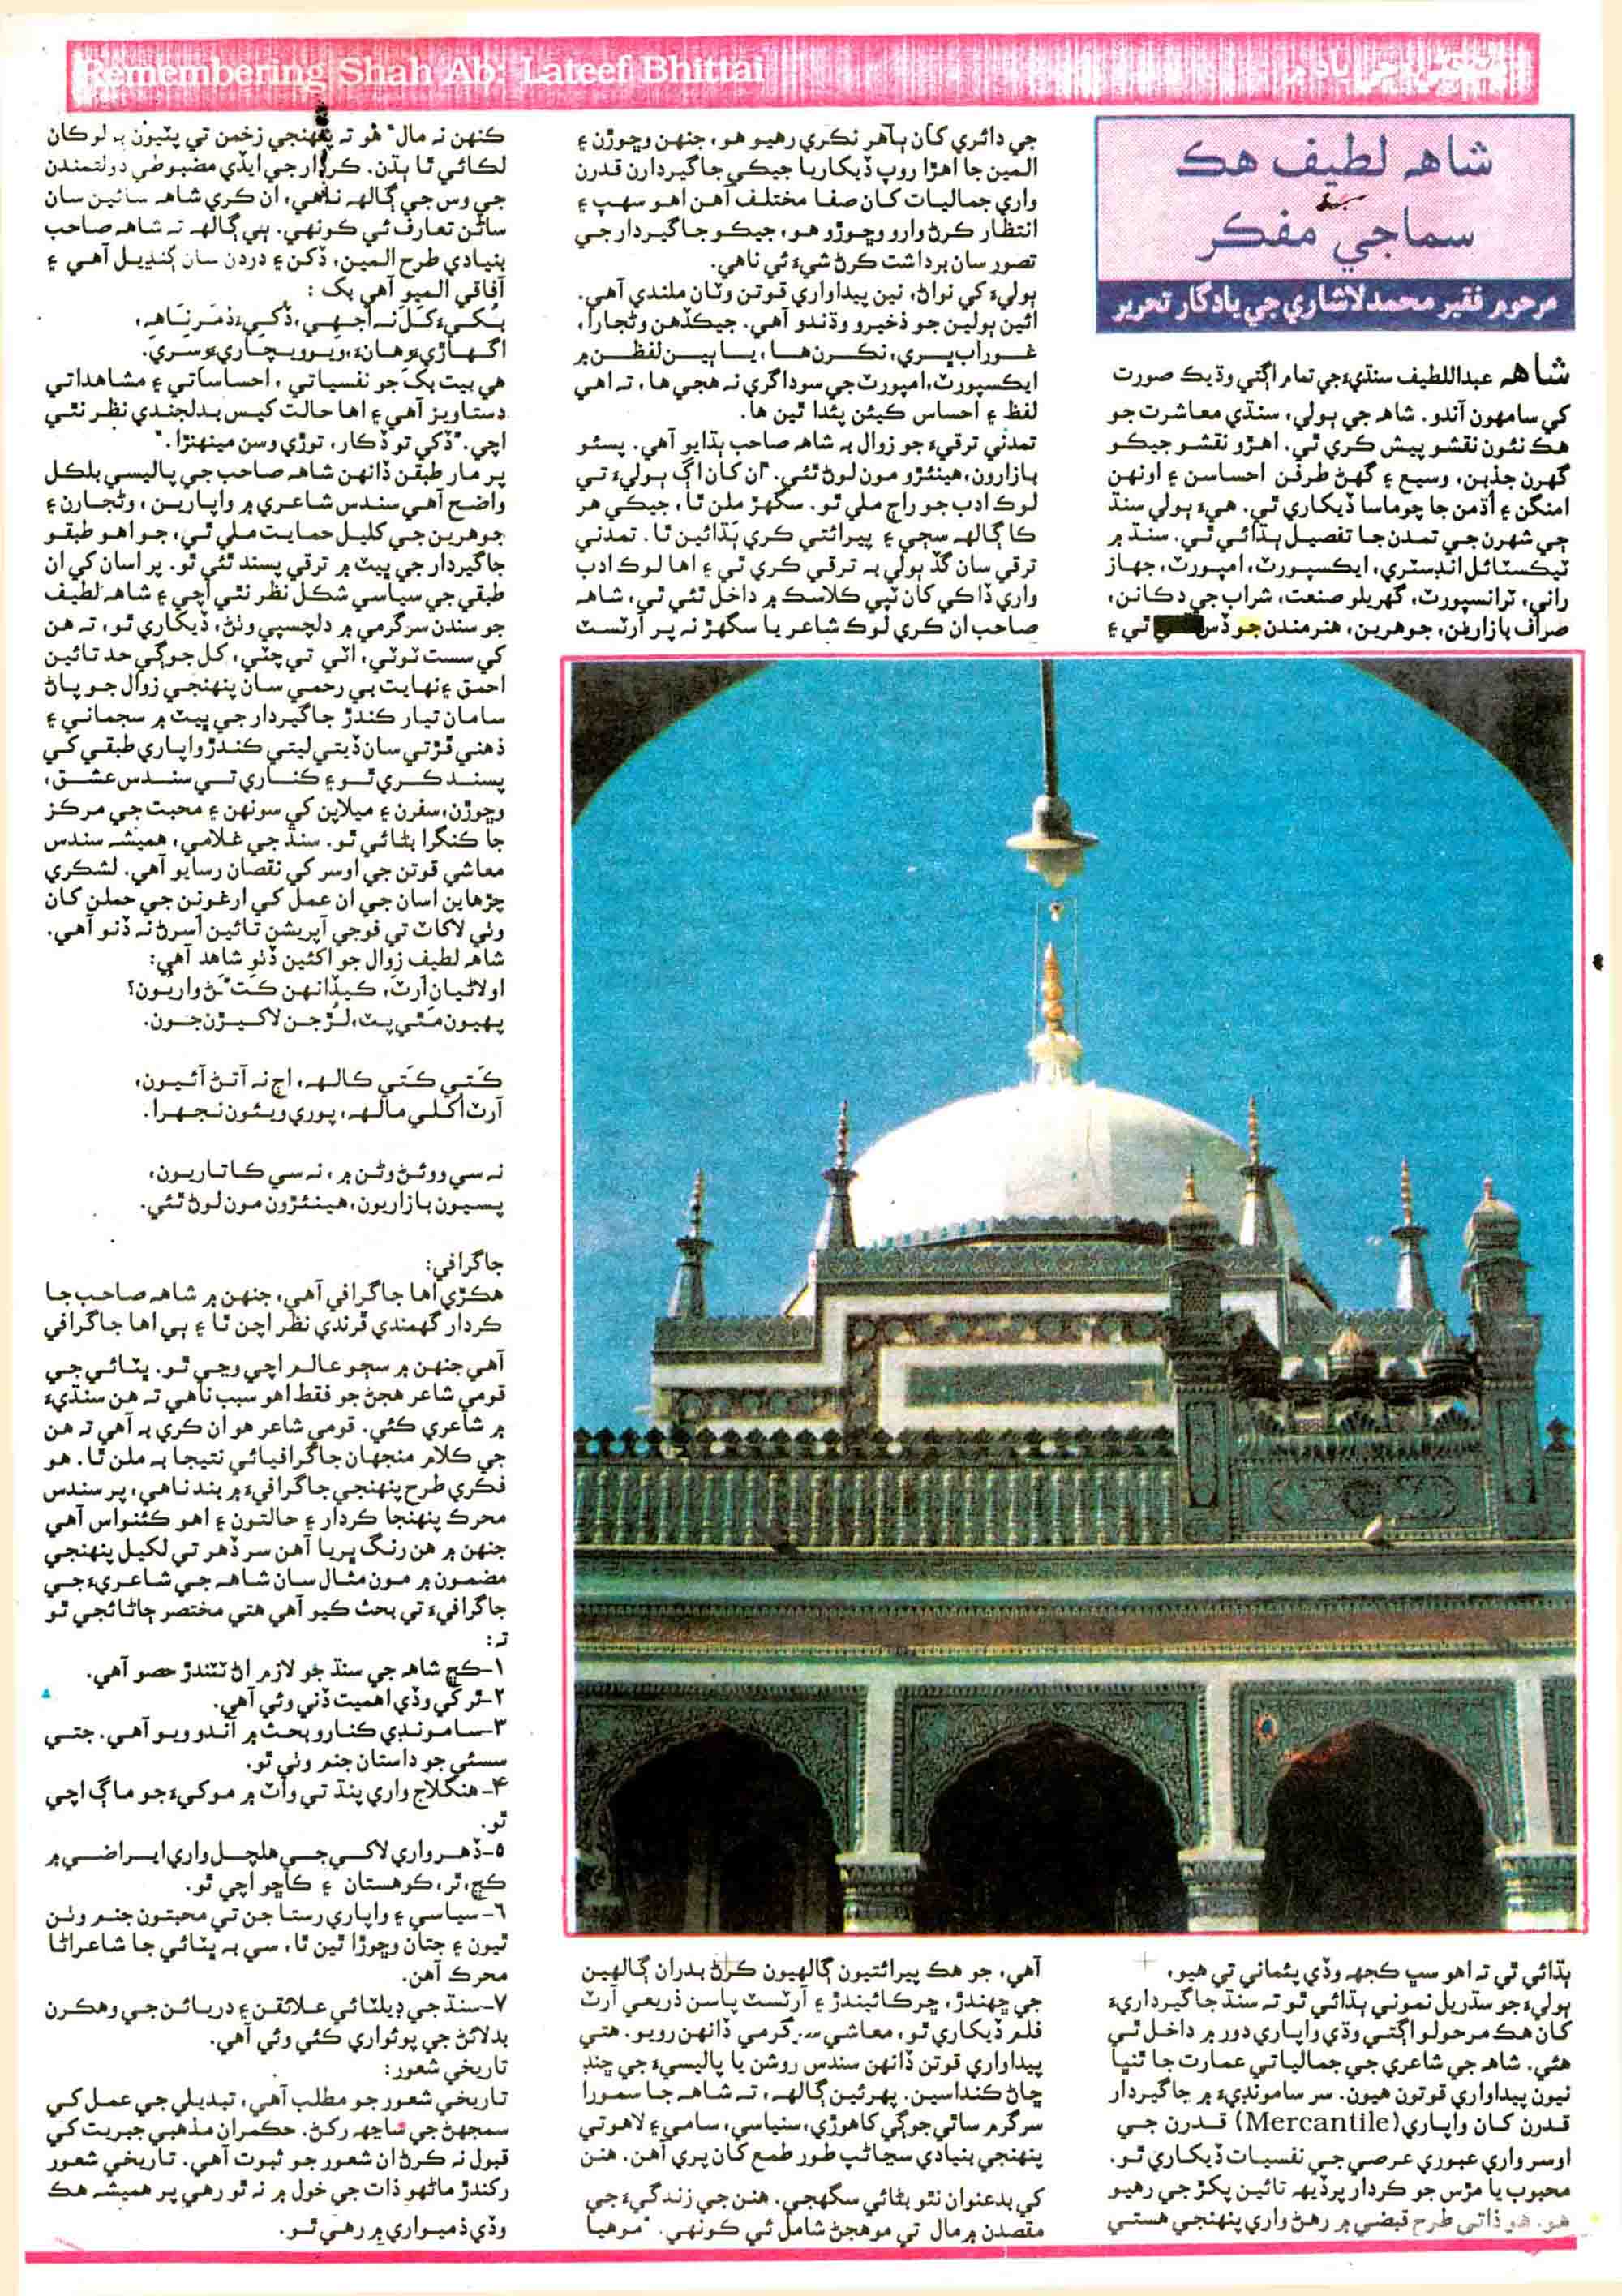 Remembering Shah Ab: Lateef Bhittai
جي ياد ۾
شاھ لطيف هڪ
سماجي مفڪر
مرحوم فقير محمد لاشاري جي يادگار تحرير
شاھ عبداللطيف سنڌيءَ جي تمام اڳتي وڌيڪ صورت
کي سامهون آندو. شاھ جي ٻولي، سنڌي معاشرت جو
هڪ نئون نقشو پيش ڪري ٿي. اهڙو نقشو جيڪو
گهرن جذبن، وسيع ۽ گهڻ طرفن احساسن ۽ اونهن
امنگن ۽ اڌمن جا چوماسا ڏيکاري ٿي. هيءَ ٻولي سنڌ
جي شهرن جي تمدن جا تفصيل ٻڌائي ٿي. سنڌ ۾
ٽيڪسٽائل انڊسٽري، ايڪسپورٽ، امپورٽ، جهاز
راني، ٽرانسپورٽ، گهريلو صنعت، شراب جي دڪانن،
صراف بازارين، جوهرين، هنرمندن جو ڏس ٿي ۽
ٻڌائي ٿي تہ اهو سڀ ڪجهہ وڏي پئماني تي هيو،
ٻوليءَ جو سڌريل نمونو ٻڌائي ٿو تہ سنڌ جاگيرداريءَ
کان هڪ مرحلو اڳتي وڌي واپاري دور ۾ داخل ٿي
هئي. شاھ جي شاعري جي جمالياتي عمارت جا ٿنڀا
نيون پيداواري قوتون هيون. سر سامونڊيءَ ۾ جاگيردار
قدرن کان واپاري (Mercantile) قدرن جي
اوسر واري عبوري عرصي جي نفسيات ڏيکاري ٿو.
محبوب يا مڙس جو ڪردار پرڏيهہ تائين پکڙجي رهيو
هو. هو ذاتي طرح قبضي ۾ رهڻ واري پنهنجي هستي
جي دائري کان ٻاهر نڪري رهيو هو، جنهن وڇوڙن ۽
المين جا اهڙا روپ ڏيکاريا جيڪي جاگيردارن قدرن
واري جماليات کان صفا مختلف آهن اهو سهپ ۽
انتظار ڪرڻ وارو وڇوڙو هو، جيڪو جاگيردار جي
تصور سان برداشت ڪرڻ شيءِ ئي ناهي.
ٻوليءَ کي نواڻ، نين پيداواري قوتن وٽان ملندي آهي.
ائين ٻولين جو ذخيرو وڌندو آهي. جيڪڏهن وڻجارا،
غوراب ڀري، نڪرن ها، يا ٻين لفظن ۾
ايڪسپورٽ، امپورٽ جي سوداگري نہ هجي ها، تہ اهي
لفظ ۽ احساس ڪيئن پئدا ٿين ها.
تمدني ترقيءَ جو زوال بہ شاھ صاحب ٻڌايو آهي. پسئو
بازارون، هينئڙو مون لوڻ ٿئي. ”ان کان اڳ ٻوليءَ تي
لوڪ ادب جو راڄ ملي ٿو. سگهڙ ملن ٿا، جيڪي هر
ڪا ڳالهہ سڄي ۽ پيرائتي ڪري ٻڌائين ٿا. تمدني
ترقي سان گڏ ٻولي بہ ترقي ڪري ٿي ۽ اها لوڪ ادب
واري ڏاڪي کان ٽپي ڪلاسڪ ۾ داخل ٿئي ٿي، شاھ
صاحب ان ڪري لوڪ شاعر يا سگهڙ نہ پر آرٽسٽ
آهي، جو هڪ پيرائتيون ڳالهيون ڪرڻ بدران ڳالهين
جي ڇهندڙ، چرڪائيندڙ ۽ آرٽسٽ پاسن ذريعي آرٽ
فلم ڏيکاري ٿو، معاشي سرگرمي ڏانهن رويو. هتي
پيداواري قوتن ڏانهن سندس روشن يا پاليسيءَ جي ڇنڊ
ڇاڻ ڪنداسين. پهرئين ڳالهہ، تہ شاھ جا سمورا
سرگرم ساٿي جوڳي کاهوڙي، سنياسي، سامي ۽ لاهوتي
پنهنجي بنيادي سڃاڻپ طور طمع کان پري آهن. هنن
کي بدعنوان نٿو بڻائي سگهجي. هنن جي زندگيءَ جي
مقصدن ۾ مال تي موهجڻ شامل ئي ڪونهي. ”موهيا
ڪنهن نہ مال“ هو تہ پنهنجي زخمن تي پٽيون بہ لوڪان
لڪائي ٿا ٻڌن. ڪردار جي ايڏي مضبوطي دولتمندن
جي وس جي ڳالهہ ناهي، ان ڪري شاھ سائين سان
سائن تعارف ئي ڪونهي. ٻي ڳالهہ تہ شاھ صاحب
بنيادي طرح المين، ڏکن ۽ دردن سان ڳنڍيل آهي ۽
آفاقي الميو آهي بک :
بکيءَ کل نہ اجهي، ڏکيءَ ذمر ناھ،
اگهاڙي ۽ وهانءُ، ويو ويچاري ۽ وسري.
هي بيت بک جو نفسياتي، احساساتي ۽ مشاهداتي
دستاويز آهي ۽ اها حالت ڪيس بدلجندي نظر نٿي
اچي. ”ڏکي تو ڏڪار، توڙي وسن مينهنڙا.“
پر مار طبقن ڏانهن شاھ صاحب جي پاليسي بلڪل
واضح آهي سندس شاعري ۾ واپارين، وڻجارن ۽
جوهرين جي کليل حمايت ملي ٿي، جو اهو طبقو
جاگيردار جي ڀيٽ ۾ ترقي پسند ٿئي ٿو. پر اسان کي ان
طبقي جي سياسي شڪل نظر نٿي اچي ۽ شاھ لطيف
جو سندن سرگرمي ۾ دلچسپي وٺڻ، ڏيکاري ٿو، تہ هن
کي سست ٽوٽي، اٽي تي چٽي، کل جوڳي حد تائين
احمق ۽ نهايت بي رحمي سان پنهنجي زوال جو پاڻ
سامان تيار ڪندڙ جاگيردار جي ڀيٽ ۾ سجماني ۽
ذهني ڦڙتي سان ڏيتي ليتي ڪندڙ واپاري طبقي کي
پسند ڪري ٿو ۽ ڪناري تي سندس عشق،
وڇوڙن، سفرن ۽ ميلاپن کي سونهن ۽ محبت جي مرڪز
جا ڪنگرا بڻائي ٿو. سنڌ جي غلامي، هميشہ سندس
معاشي قوتن جي اوسر کي نقصان رسايو آهي. لشڪري
چڙهاين اسان جي ان عمل کي ارغونن جي حملن کان
وٺي لاکاٽ تي فوجي آپريشن تائين اسرڻ نہ ڏنو آهي.
شاھ لطيف زوال جو اکئين ڏٺو شاهد آهي:
اولاڻيان آرٽ، ڪيڏانهن ڪتڻ واريون؟
پهيون مٿي پٽ، لڙجن لاکيڙن جون.
ڪتي ڪتي ڪالهہ، اڄ نہ آتڻ آئيون،
آرٽ اڪلي مالهہ، پوري ويئون نجهرا.
نہ سي ووئڻ وڻن ۾، نہ سي ڪاتاريون،
پسيون بازاريون، هينئڙون مون لوڻ ٿئي.
جاگرافي:
هڪڙي اها جاگرافي آهي، جنهن ۾ شاھ صاحب جا
ڪردار گهمندي ڦرندي نظر اچن ٿا ۽ ٻي اها جاگرافي
آهي جنهن ۾ سڄو عالم اچي وڃي ٿو. ڀٽائي جي
قومي شاعر هجڻ جو فقط اهو سبب ناهي تہ هن سنڌيءَ
۾ شاعري ڪئي. قومي شاعر هو ان ڪري بہ آهي تہ هن
جي ڪلام منجهان جاگرافيائي نتيجا بہ ملن ٿا. هو
فڪري طرح پنهنجي جاگرافيءَ ۾ بند ناهي، پر سندس
محرڪ پنهنجا ڪردار ۽ حالتون ۽ اهو ڪئنواس آهي
جنهن ۾ هن رنگ ڀريا آهن سر ڏهر تي لکيل پنهنجي
مضمون ۾ مون مثال سان شاھ جي شاعريءَ جي
جاگرافيءَ تي بحث ڪيو آهي هتي مختصر ڄاڻائجي ٿو
تہ:
۱-ڪڇ شاھ جي سنڌ جو لازم اڻ ٽٽندڙ حصو آهي.
۲-ٿر کي وڏي اهميت ڏني وئي آهي.
۳-سامونڊي ڪنارو بحث ۾ آندو ويو آهي. جتي
سسئي جو داستان جنم وٺي ٿو.
۴-هنگلاج واري پنڌ تي واٽ ۾ موکيءَ جو ماڳ اچي
ٿو.
۵-ڏهر واري لاکي جي هلچل واري ايراضي ۾
ڪڇ، ٿر، ڪوهستان ۽ ڪاڇو اچي ٿو.
۶-سياسي ۽ واپاري رستا جن تي محبتون جنم وٺن
ٿيون ۽ جتان وڇوڙا ٿين ٿا، سي بہ ڀٽائي جا شاعراڻا
محرڪ آهن.
۷-سنڌ جي ڊيلٽائي علائقن ۽ دريائن جي وهڪرن
بدلائڻ جي پوئواري ڪئي وئي آهي.
تاريخي شعور:
تاريخي شعور جو مطلب آهي، تبديلي جي عمل کي
سمجهڻ جي ساڃهہ رکڻ. حڪمران مذهبي جبريت کي
قبول نہ ڪرڻ ان شعور جو ثبوت آهي. تاريخي شعور
رکندڙ ماڻهو ذات جي خول ۾ نہ ٿو رهي پر هميشہ هڪ
وڏي ذميواري ۾ رهي ٿو.